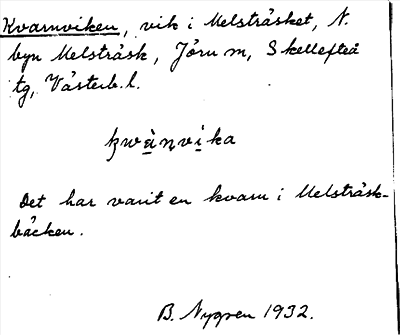 Kvarnviken, vik i Melsträsket, N.
byn Melsträsk, Jörn m, Skellefteå
tg, Västerb. l.
ķwànvika
Det har varit en kvarn i Melsträsk-
bäcken.
B. Nygren 1932.